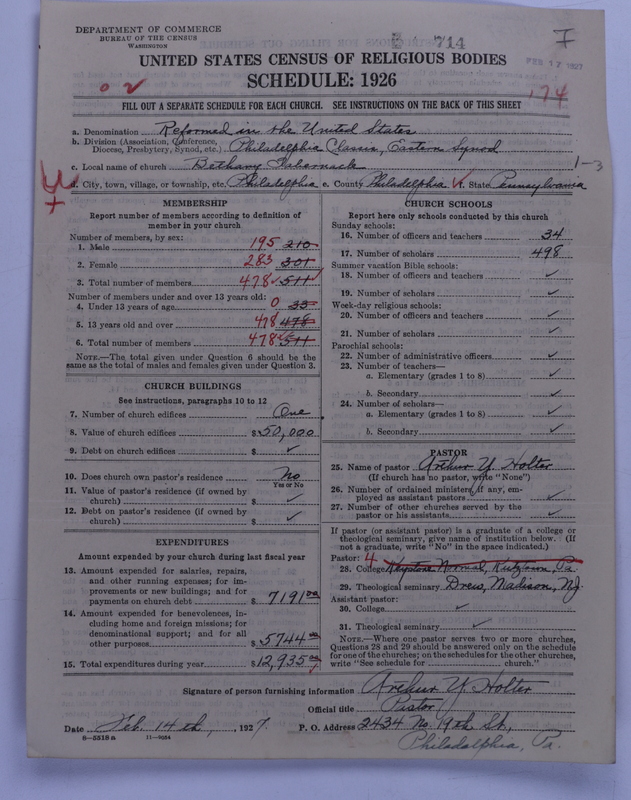 DEPARTMENT OF COMMERCE
BUREAU OF THE CENSUS
WASHINGTON
714
I
FEB 17 1927
UNITED STATES CENSUS OF RELIGIOUS BODIES
SCHEDULE: 1926
174
FILL OUT A SEPARATE SCHEDULE FOR EACH CHURCH. SEE INSTRUCTIONS ON THE BACK OF THIS SHEET
a. Denomination Reformed in the United States
b. Division (Association, Conference, Diocese, Presbytery, Synod, etc.) Philadelphia Classis, Eastern Synod
c. Local name of church Bethany Tabernacle
1-3
d. City, town, village, or township, etc. Philadelphia e. County Philadelphia f. State Pennsylvania
MEMBERSHIP
Report number of members according to definition of
member in your church
Number of members, by sex:
1. Male 195 210
2. Female 283 301
3. Total number of members 478 511
Number of members under and over 13 years old:
4. Under 13 years of age 0 33
5. 13 years old and over 478 478
6. Total number of members 478 511
NOTE.—The total given under Question 6 should be the
same as the total of males and females given under Question 3.
CHURCH BUILDINGS
See instructions, paragraphs 10 to 12
7. Number of church edifices One
8. Value of church edifices $50,000
9. Debt on church edifices $ ✓
10. Does church own pastor's residence No
Yes or No
11. Value of pastor's residence (if owned by
church) $ ✓
12. Debt on pastor's residence (if owned by
church) $ ✓
EXPENDITURES
Amount expended by your church during last fiscal year
13. Amount expended for salaries, repairs,
and other running expenses; for im-
provements or new buildings; and for
payments on church debt $7191 00
14. Amount expended for benevolences, in-
cluding home and foreign missions; for
denominational support; and for all
other purposes $5744 00
15. Total expenditures during year $12,935 00
CHURCH SCHOOLS
Report here only schools conducted by this church
Sunday schools:
16. Number of officers and teachers 34
17. Number of scholars 498
Summer vacation Bible schools:
18. Number of officers and teachers ✓
19. Number of scholars ✓
Week-day religious schools:
20. Number of officers and teachers ✓
21. Number of scholars ✓
Parochial schools:
22. Number of administrative officers ✓
23. Number of teachers—
a. Elementary (grades 1 to 8) ✓
b. Secondary ✓
24. Number of scholars—
a. Elementary (grades 1 to 8) ✓
b. Secondary ✓
PASTOR
25. Name of pastor Arthur Y. Holter
(If church has no pastor, write "None")
26. Number of ordained ministers, if any, em-
ployed as assistant pastors ✓
27. Number of other churches served by the
pastor or his assistants ✓
If pastor (or assistant pastor) is a graduate of a college or
theological seminary, give name of institution below. (If
not a graduate, write "No" in the space indicated.)
Pastor: 4
28. College Keystone Normal, Kutztown, Pa.
29. Theological seminary Drew, Madison, NJ.
Assistant pastor:
30. College ✓
31. Theological seminary ✓
NOTE.—Where one pastor serves two or more churches,
Questions 28 and 29 should be answered only on the schedule
for one of the churches; on the schedules for the other churches,
write "See schedule for church."
Signature of person furnishing information Arthur Y. Holter
Official title Pastor
Date Feb. 14th, 1927.
P. O. Address 2434 No. 19th St.,
Philadelphia, Pa.
8-5518a 11-9264